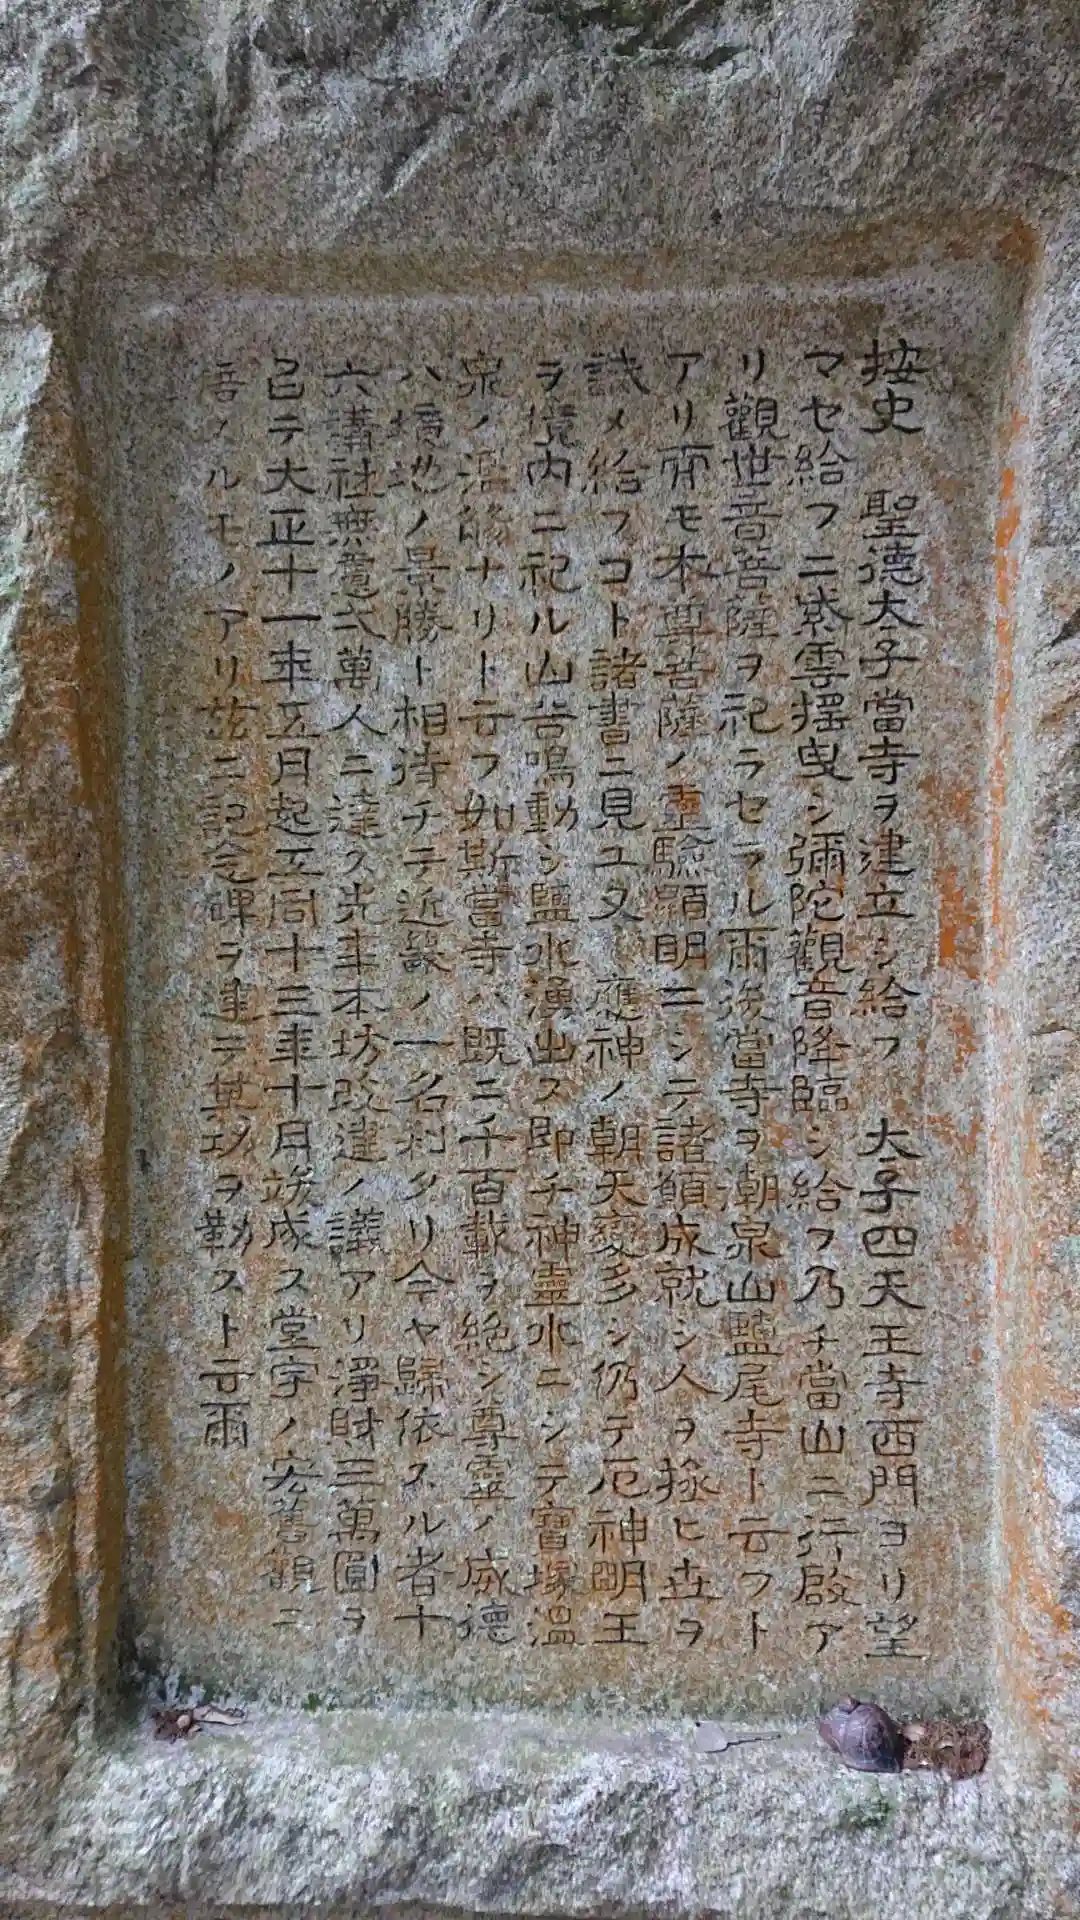 按史　聖德太子當寺ヲ建立シ給フ　太子四天王寺西門ヨリ望
マセ給フニ紫雲揺曳シ彌陀觀音降臨シ給フ乃チ當山ニ行啟ア
リ觀世音菩薩ヲ祀ラセラル爾後當寺ヲ朝泉山鹽尾寺ト云フト
アリ而モ本尊菩薩ノ靈驗顯明ニシテ諸願成就シ人ヲ拯ヒ世ヲ
誡メ給フコト諸書ニ見ユ又　應神ノ朝天変多シ仍テ厄神明王
ヲ境内ニ祀ル山岳鳴動シ鹽水湧出ス即チ神靈水ニシテ寶塚温
泉ノ濫觴ナリト云フ如斯當寺ハ既ニ千百載ヲ絶シ尊霊ノ威德
ハ境地ノ景勝ト相待チテ近畿ノ一名刹タリ今ヤ歸依スル者十
六講社無慮弌萬人ニ達ス先年本坊改建ノ議アリ淨財三萬圓ヲ
以テ大正十一年五月起工同十三年十月竣成ス堂宇ノ宏舊觀ニ
倍スルモノアリ茲ニ記念碑ヲ建テ其功ヲ勒スト云爾